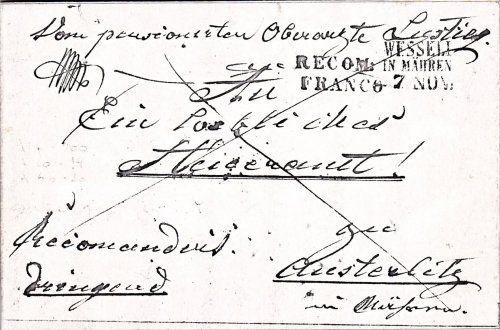 Vom pensionirten Oberarzte Lustig
WESSELI
RECOM: IN MÄHREN
FRANCO 7 NOV:
An
Ein Löbliches
Steueramt!
Recomandirt
zu
dringend
Austerlitz
in Mähren.